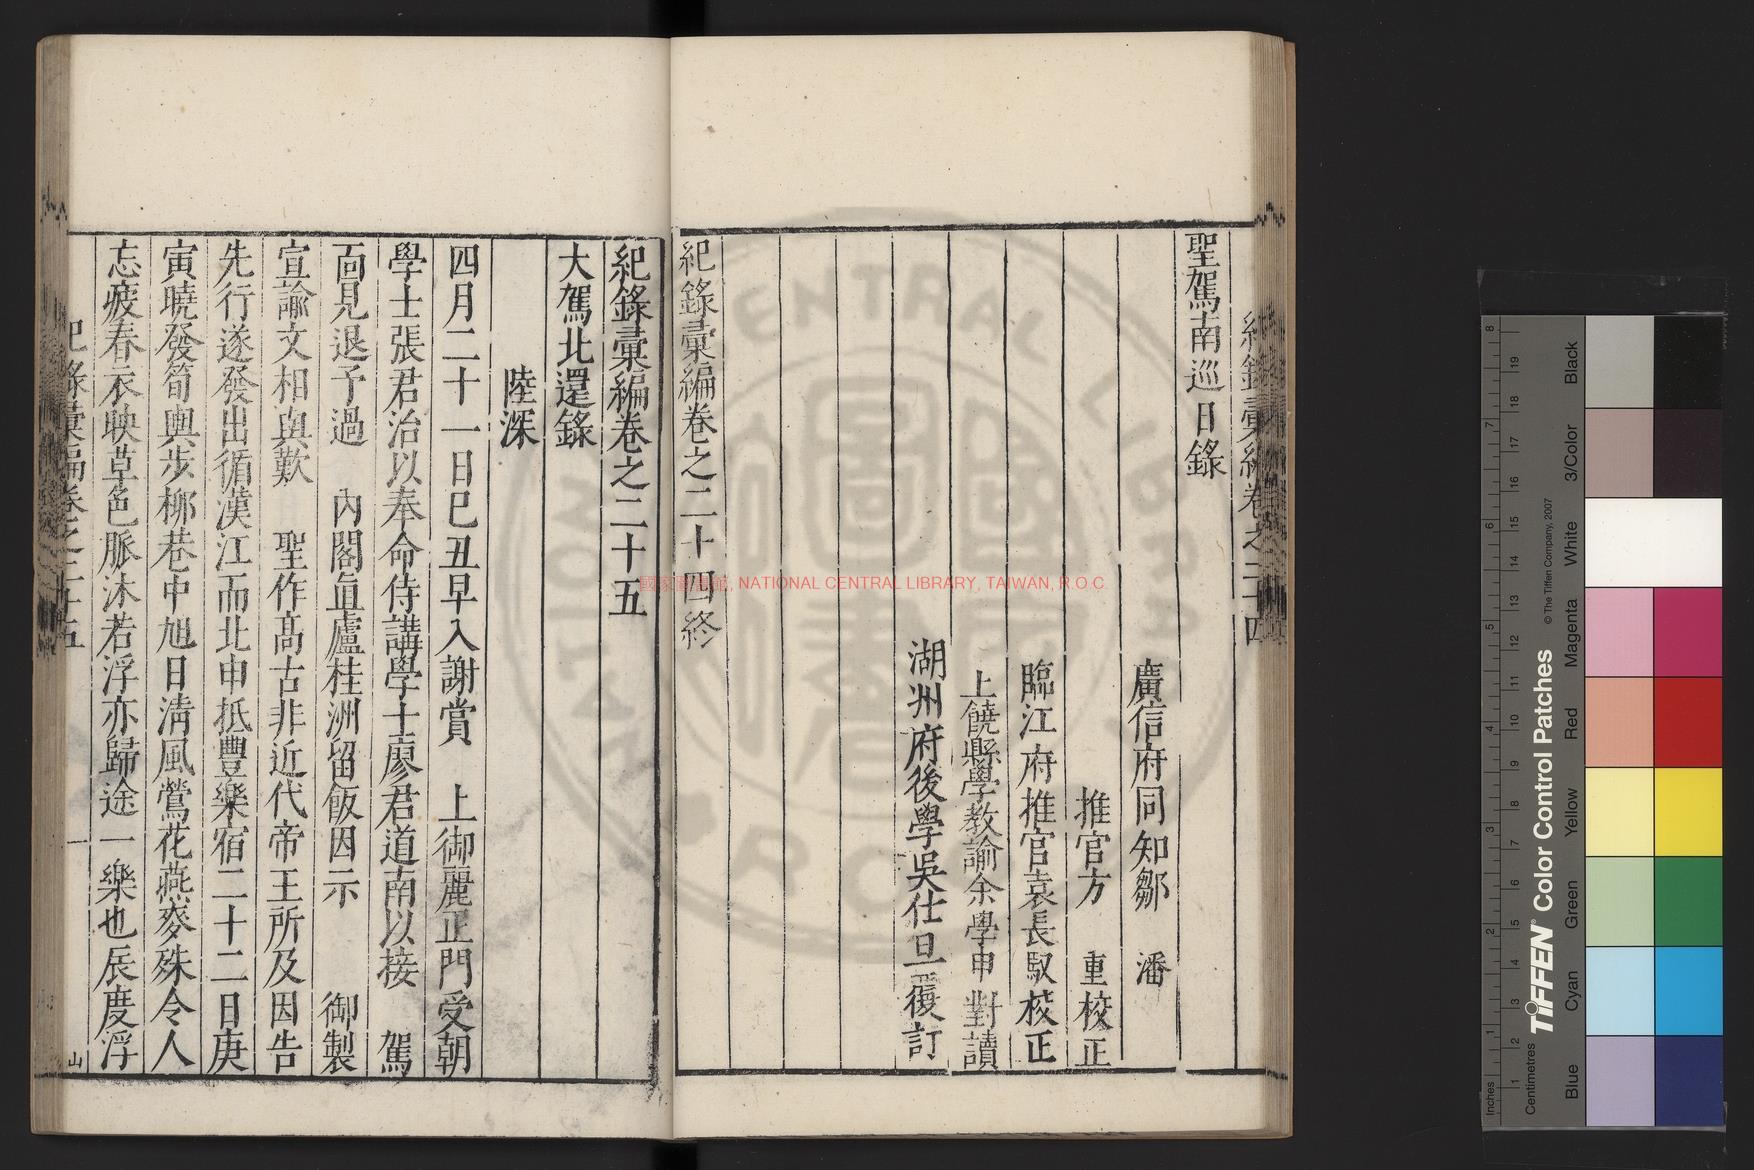 紀錄彙編卷之二十四
聖駕南巡日錄
廣信府同知鄒　潘
推官方　重校正
臨江府推官袁長馭校正
上饒縣學教諭余學申對讀
湖州府後學吳仕旦覆訂
紀錄彙編卷之二十四終
紀錄彙編卷之二十五
大駕北還錄
陸深
四月二十一日巳丑早入謝賞　上御麗正門受朝
學士張君治以奉命侍講學士廖君道南以接　駕
面見退予過　內閣直廬桂洲留飯因示　御製
宣諭文相與歎　聖作高古非近代帝王所及因告
先行遂發出循漢江而北申抵豐樂宿二十二日庚
寅曉發筍輿步柳巷中旭日清風鶯花燕麥殊令人
忘疲春衣映草色脈沐若浮亦歸途一樂也辰度浮
紀錄彙編卷之二十五
一
山
國家圖書館, NATIONAL CENTRAL LIBRARY, TAIWAN, R.O.C
TIFFEN® Color Control Patches
© The Tiffen Company, 2007
Inches
Centimetres
Blue
Cyan
Green
Yellow
Red
Magenta
White
3/Color
Black